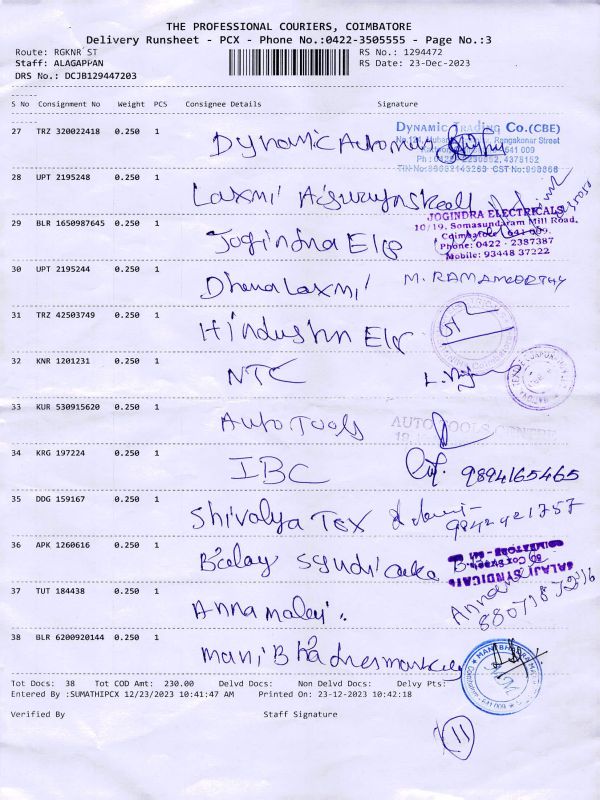 THE PROFESSIONAL COURIERS, COIMBATORE
Delivery Runsheet - PCX - Phone No.:0422-3505555 - Page No.:3
Route: RGKNR ST
RS No.: 1294472
Staff: ALAGAPPAN
RS Date: 23-Dec-2023
DRS No.: DCJB129447203
S No Consignment No Weight PCS Consignee Details Signature
DYNAMIC TRADING CO.(CBE)
27 TRZ 320022418 0.250 1 Dynamic
Rengakonar Street
641 009
28 UPT 2195248 0.250 1 Laxmi
JOGINDRA ELECTRICALS
10/19, Somasundaram Mill Road,
29 BLR 1650987645 0.250 1 Jogindra Ele
Coimbatore - 641 009.
Phone: 0422 - 2387387
Mobile: 93448 37222
30 UPT 2195244 0.250 1 Dhana Laxmi M. RAMAMOORTHY
31 TRZ 42503749 0.250 1 Hindustan Ele
32 KNR 1201231 0.250 1 NTC
33 KUR 530915620 0.250 1 Auto Tools
AUTO TOOLS CENTRE
34 KRG 197224 0.250 1 IBC 9894165465
35 DDG 159167 0.250 1 Shivalya Tex
9842421757
36 APK 1260616 0.250 1 Balaj
BALAJI SYNDICATE
37 TUT 184438 0.250 1 Annamalai
38 BLR 6200920144 0.250 1 Mani Bhadra
Tot Docs: 38 Tot COD Amt: 230.00 Delvd Docs: Non Delvd Docs: Delvy Pts:
Entered By :SUMATHIPCX 12/23/2023 10:41:47 AM Printed On: 23-12-2023 10:42:18
Verified By Staff Signature
11